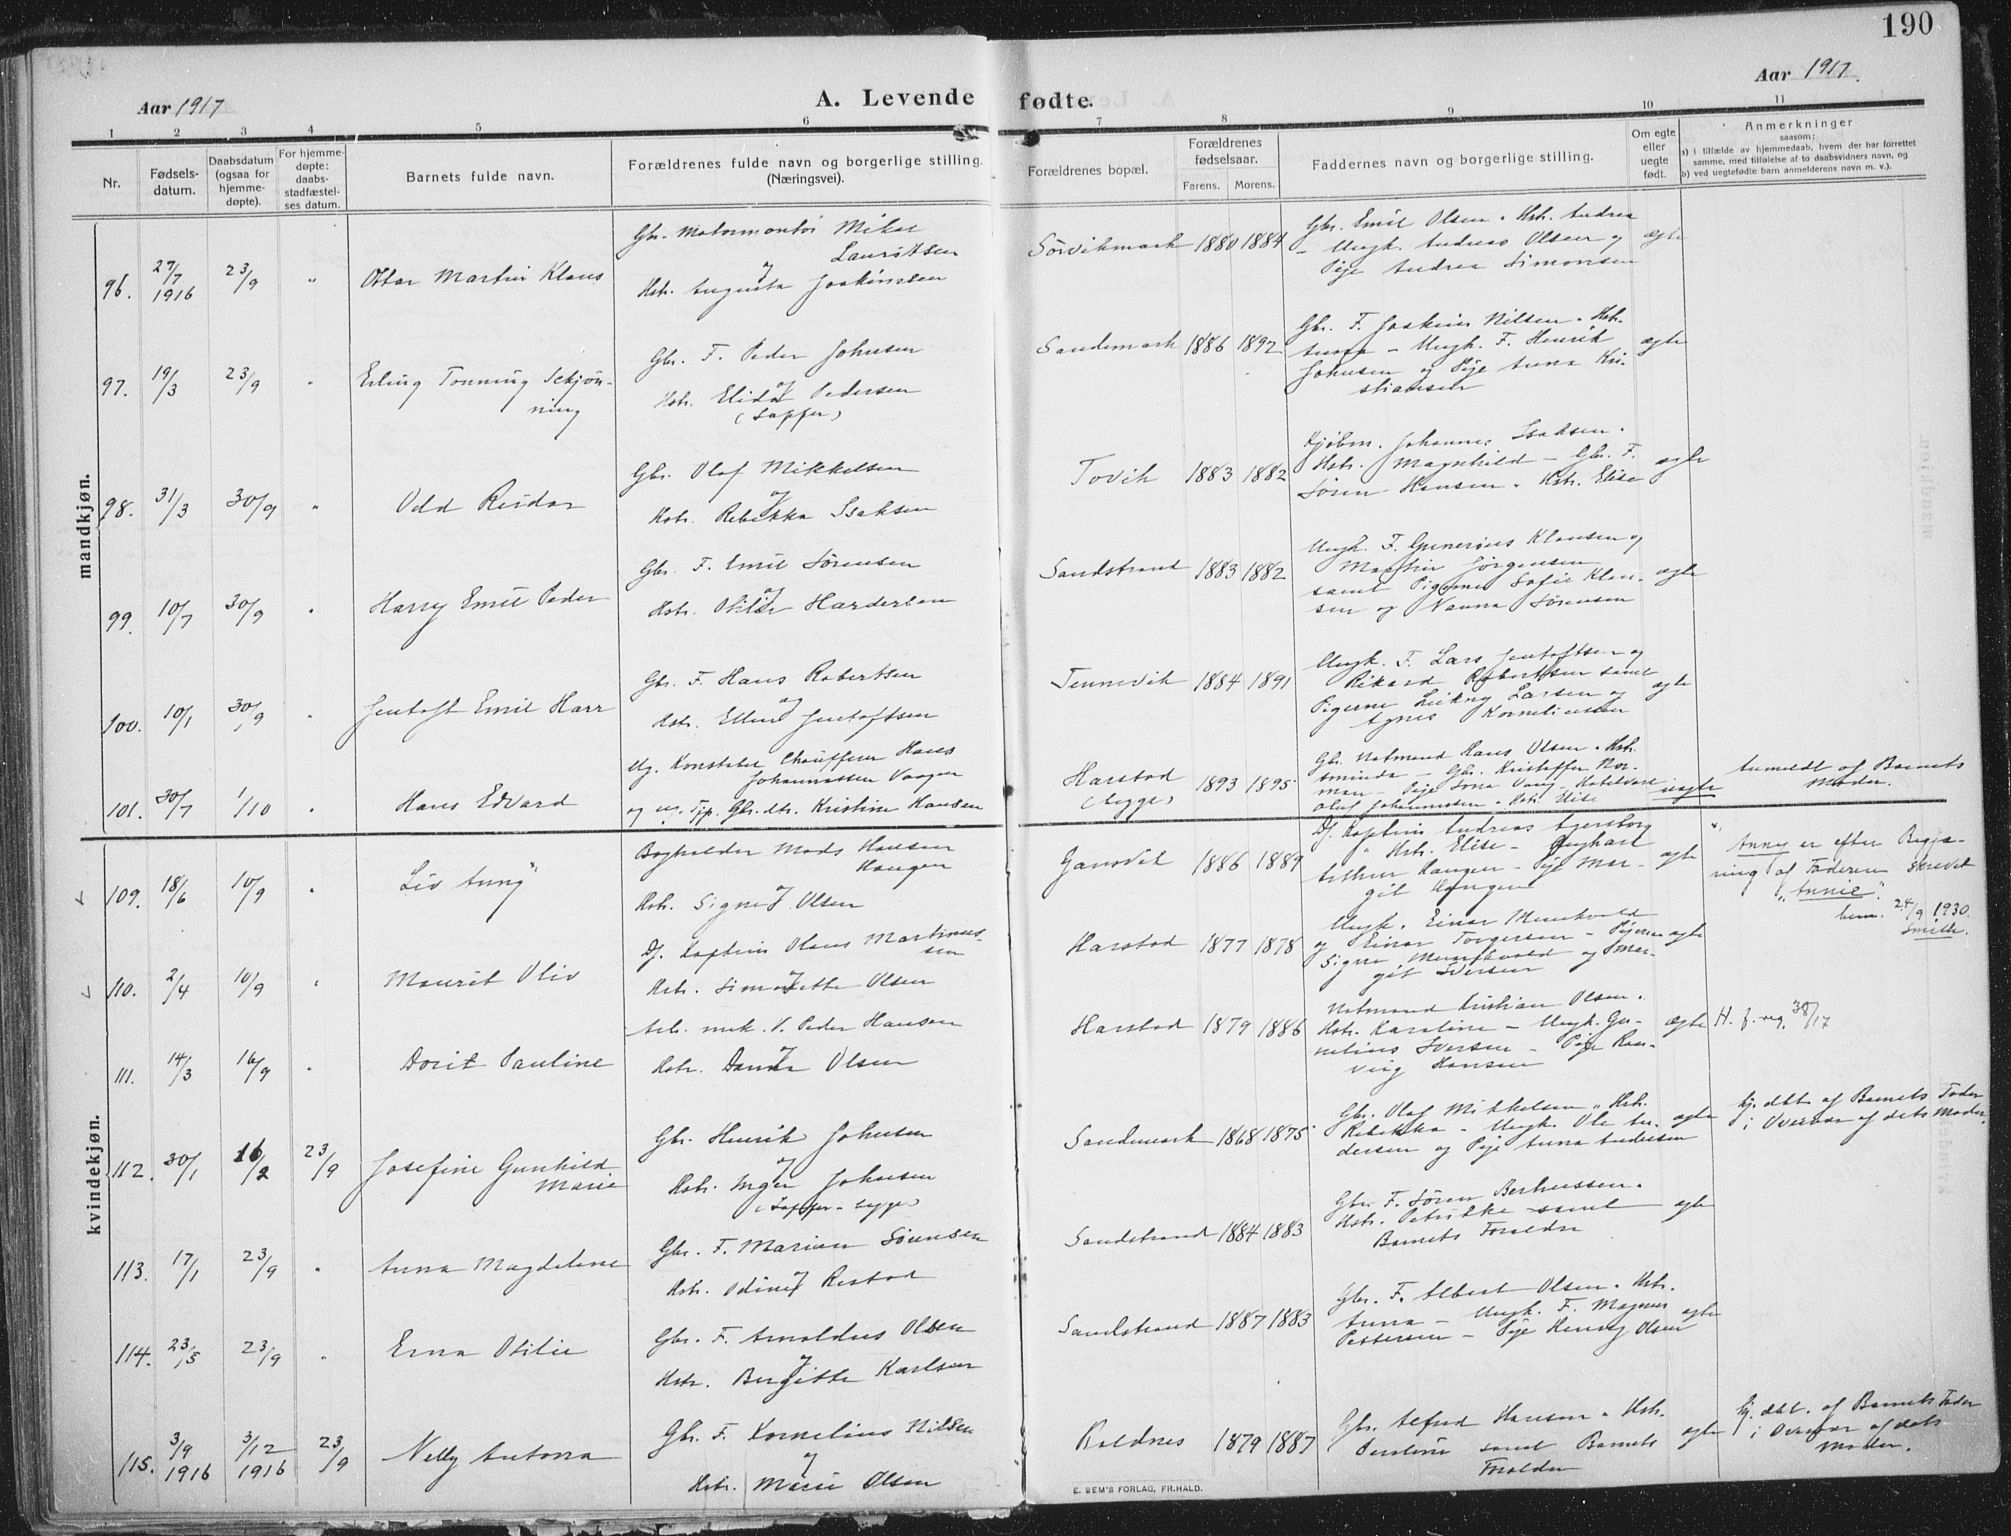 190
Aar 1917
A. Levende fødte.
Aar 1917.
1 2 3 4 5 6 7 8 9 10 11
Nr.
Fødsels-
datum.
Daabsdatum
(ogsaa for
hjemme-
døpte).
For hjemme-
døpte:
daabs-
stadfæstel-
ses datum.
Barnets fulde navn.
Forældrenes fulde navn og borgerlige stilling.
(Næringsvei).
Forældrenes bopæl.
Forældrenes
fødselsaar.
Farens. Morens.
Faddernes navn og borgerlige stilling.
Om egte
eller
uegte
født.
Anmerkninger
saasom:
a) i tilfælde av hjemmedaab, hvem der har forrettet
samme, med tilføielse af to daabsvidners navn, og
b) ved uegtefødte barn anmelderens navn m. v.).
mandkjøn.
96. 27/7 1916 23/9 " Ottar Martin Klaus
Gbr. Motormontør Mikal
Lauritsen
og
Hstr. Augusta Joakimsen
Sørvikmark 1880 1884
Gbr. Emil Olsen. Hstr. Andrea
– Ungk. Andreas Olsen og
Pige Andrea Simonsen
ægte
97. 19/3 23/9 " Erling Tonning Schjøn-
ning
Gbr. F. Peder Johnsen
og
Hstr. Elida Pedersen
(Lapper)
Sandemark 1886 1892
Gbr. F. Joakim Nilsen. Hstr.
Anna – Ungk. F. Henrik
Johnsen og Pige Anna Kri-
stiansen
ægte
98. 31/3 30/9 " Odd Reidar
Gbr. Olaf Mikkelsen
og
Hstr. Rebekka Isaksen
Tovik 1883 1882
Kjøbm. Johannes Isaksen.
Hstr. Magnhild – Gbr. F.
Søren Hansen. Hstr. Elise
ægte
99. 10/7 30/9 " Harry Emil Peder
Gbr. F. Emil Sørensen
og
Hstr. Otilie Hardersen
Sandstrand 1883 1882
Ungk. F. Gunerius Klausen og
Martin Jørgensen
samt Pigerne Sofie Klau-
sen og Nanna Sørensen
ægte
100. 10/1 30/9 " Jentoft Emil Harr
Gbr. F. Hans Robertsen
og
Hstr. Ellen Jentoftsen
Tennevik 1884 1891
Ungk. F. Lars Jentoftsen og
Rikard Robertsen samt
Pigerne Larsen og
Agnes Korneliussen
ægte
101. 30/7 1/10 " Hans Edvard
Ug. Konstabel Chauffeur Hans
Johannessen Vaagen
og ug. Tjp. Gbr.dtr. Kristine Hansen
Harstad
(begge)
1893 1895
Gbr. Notmand Hans Olsen. Hstr.
– Gbr. Kristoffer Nor-
man – Pige
Oluf Johannessen. Hstr. Elise
uægte
Anmeldt af Barnets
Moder.
kvindekjøn.
109. 18/6 10/9 " Liv Anny"
Bogholder Mads Hansen
Haugen
og
Hstr. Signe J. Olsen
Gansvik 1886 1889
Df. Kaptein Andreas
" Hstr. Elise – Ungkarl
Arthur Haugen – Pige Mar-
git Haugen
ægte
" Anny er efter Begjæ-
ring af Faderen skrevet
"Annie".
24/9 1930.
Smith.
110. 2/4 10/9 " Maurit Oliv
Df. Kaptein Olaus Martinus-
sen
og
Hstr. Simonette Olsen
Harstad 1877 1878
Ungk. Einar
og Einar Torgersen – Pigerne
Signe og Mar-
git Iversen
ægte
111. 14/3 16/9 " Dorit Pauline
Arb. mek. V. Peder Hansen
og
Hstr. Olsen
Harstad 1879 1886
Notmand Kristian Olsen.
Hstr. Karoline – Ungk. Cor-
nelius Iversen – Pige Ran-
veig Hansen
ægte
H. f. reg. 30/8 17
112. 30/1 16/2 23/9 Josefine Gunhild
Marie
Gbr. Henrik Johnsen
og
Hstr. Inger Johnsen
(Lapper – begge)
Sandemark 1868 1875
Gbr. Olaf Mikkelsen. Hstr.
Rebekka – Ungk. Ole An-
dersen og Pige Anna Andersen
ægte
hj. døbt af Barnets Fader
i Overvær af dets Moder.
113. 17/1 23/9 " Anna Magdelene
Gbr. F. Marius Sørensen
og
Hstr. Odine Restad
Sandstrand 1884 1883
Gbr. F. Søren Berteussen.
Hstr. Petrikke samt
Barnets Foreldre
ægte
114. 23/5 23/9 " Erna Otilie
Gbr. F. Arnoldus Olsen
og
Hstr. Bergitte Karlsen
Sandstrand 1887 1883
Gbr. F. Albert Olsen. Hstr.
Anna – Ungk. F. Magnus
Pettersen – Pige Henny Olsen
ægte
115. 3/9 1916 3/12 1916 23/9 Nelly Antona
Gbr. F. Kornelius Nilsen
og
Hstr. Marie Olsen
Roldnes 1879 1887
Gbr. Alfred Hansen. Hstr.
samt Barnets
Forældre
ægte
hj. døbt. af Barnets Fader
i Overvær af dets
Moder.
E. SEM'S FORLAG, FR.HALD.